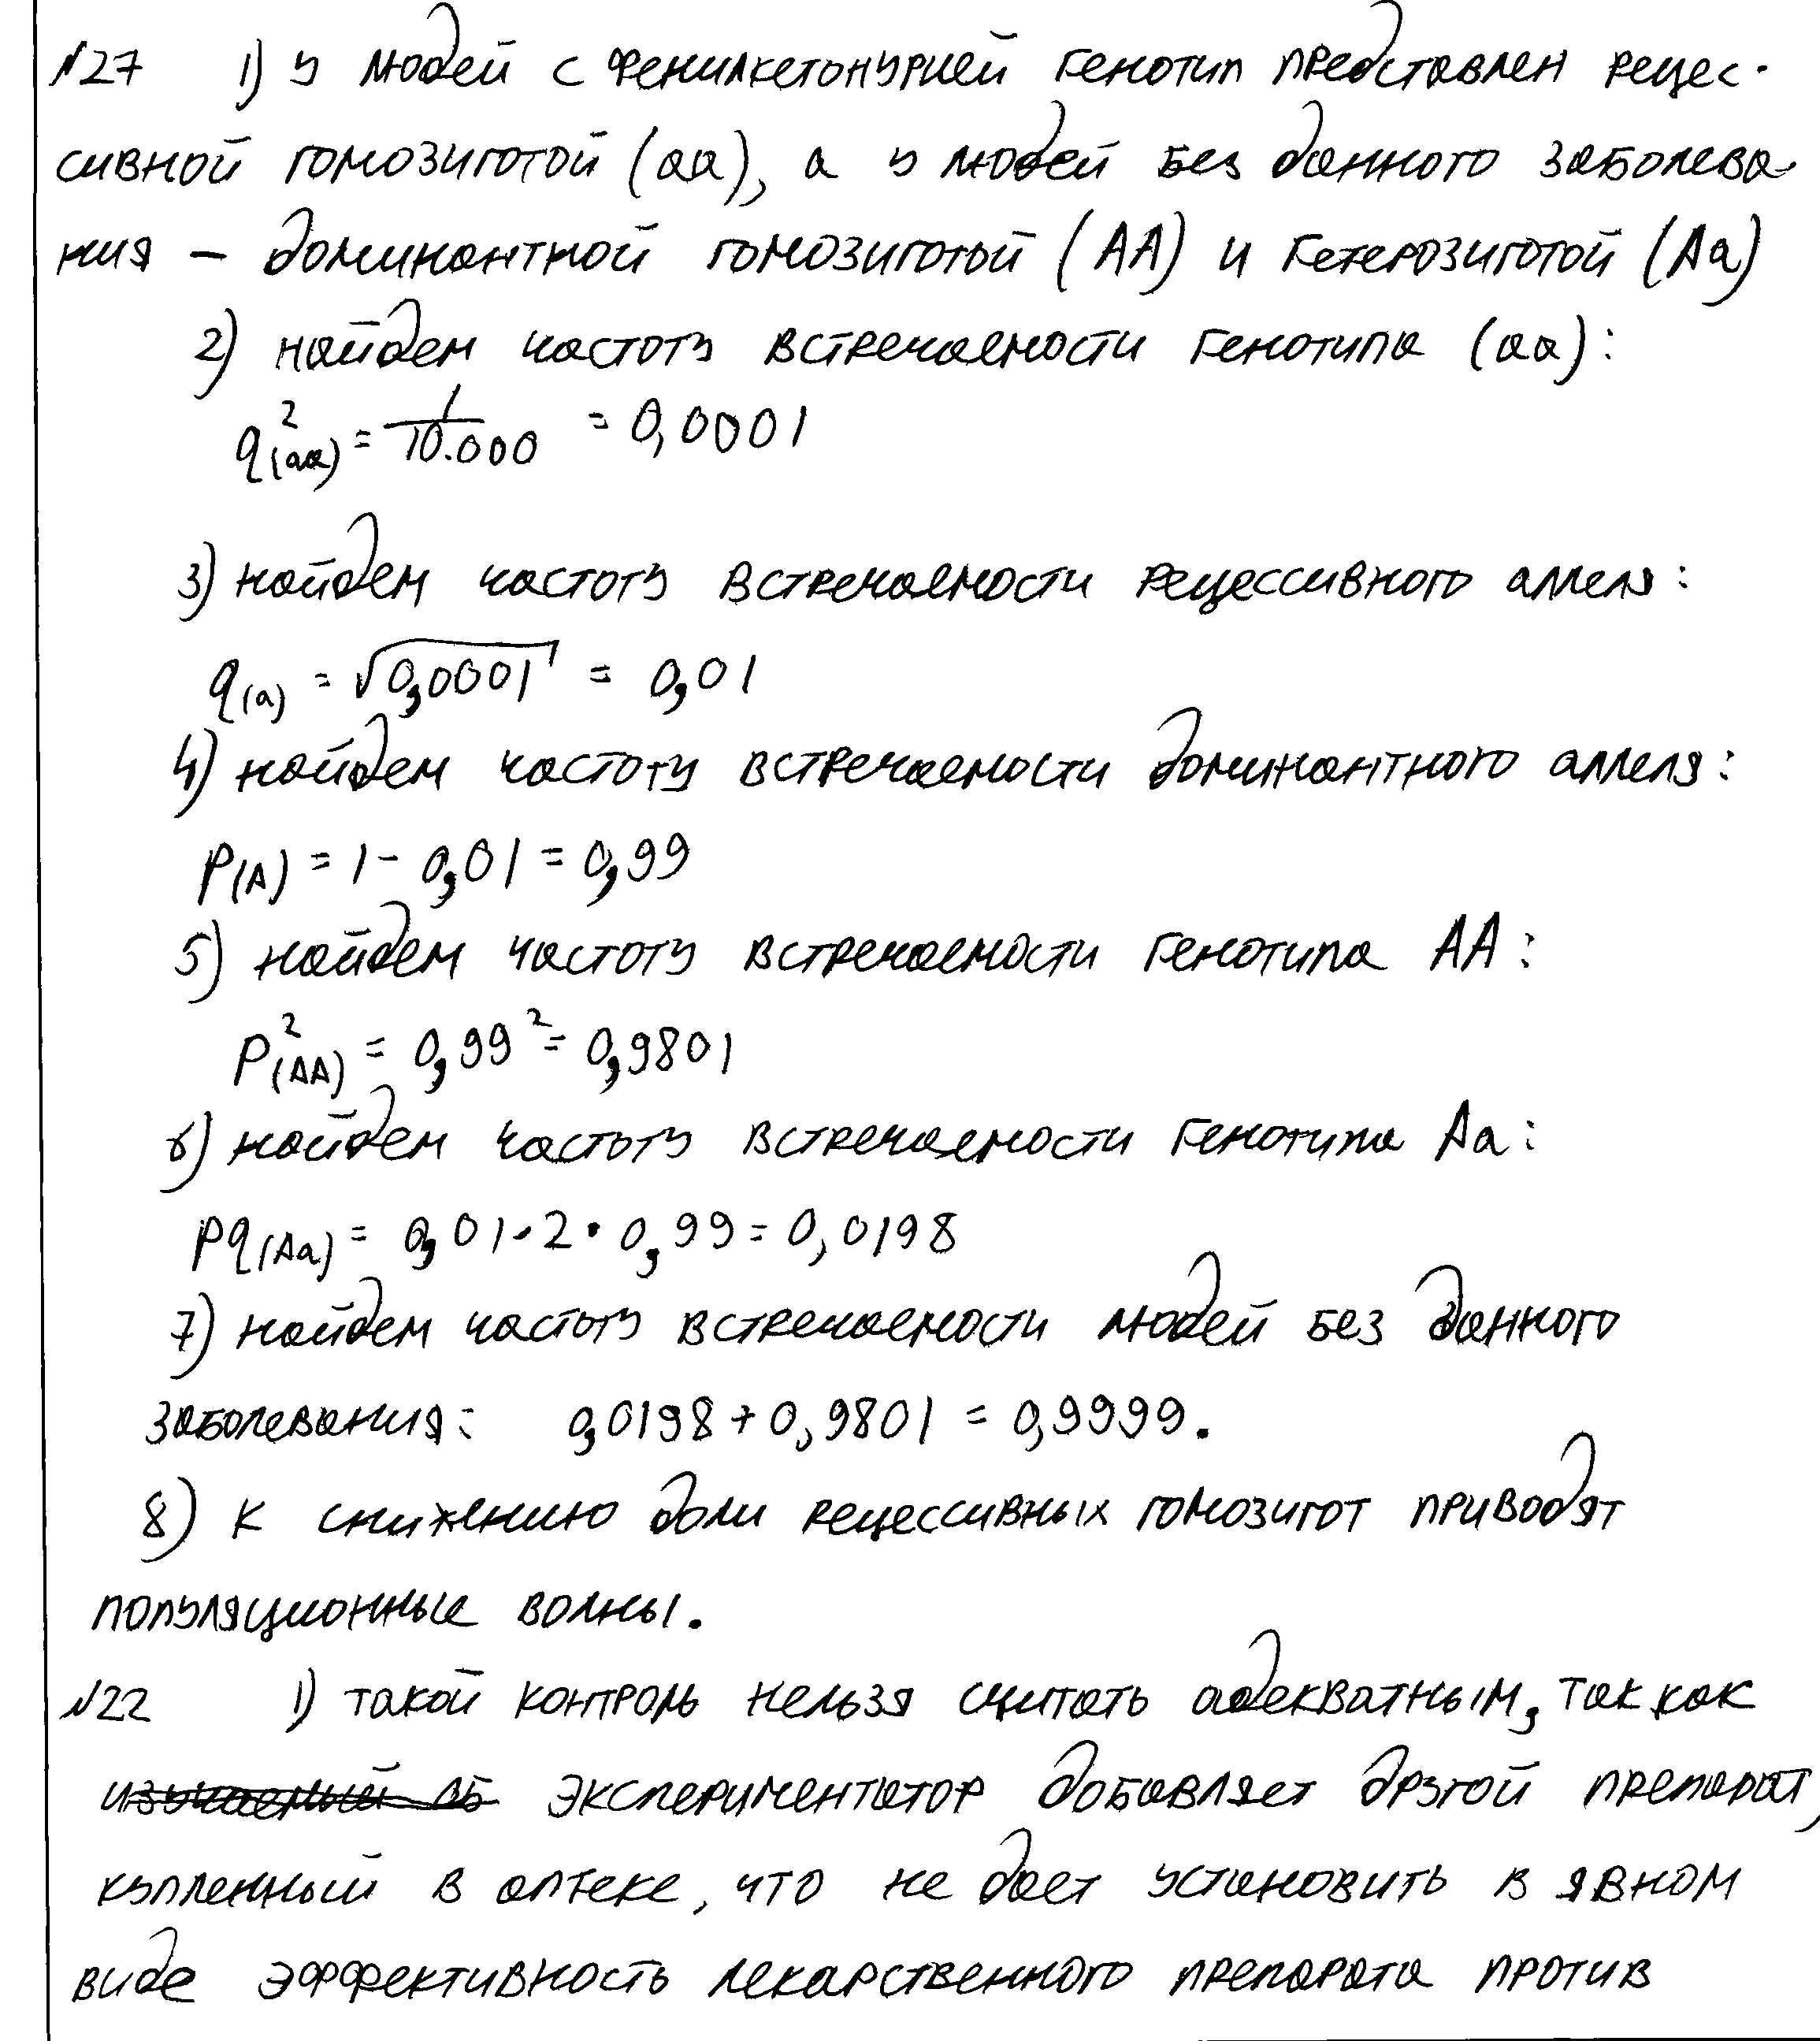 №27 1) у людей с фенилкетонурией генотип представлен рецес-
сивной гомозиготой (аа), а у людей без данного заболева-
ния – доминантной гомозиготой (АА) и гетерозиготой (Аа)
2) найдем частоту встречаемости генотипа (аа):
q²(аа) = 1/10.000 = 0,0001
3) найдем частоту встречаемости рецессивного аллеля:
q(а) = √0,0001 = 0,01
4) найдем частоту встречаемости доминантного аллеля:
p(А) = 1 - 0,01 = 0,99
5) найдем частоту встречаемости генотипа АА:
p²(АА) = 0,99² = 0,9801
6) найдем частоту встречаемости генотипа Аа:
pq(Аа) = 0,01·2·0,99 = 0,0198
7) найдем частоту встречаемости людей без данного
заболевания: 0,0198 + 0,9801 = 0,9999.
8) к снижению доли рецессивных гомозигот приводят
популяционные волны.
№22 1) такой контроль нельзя считать адекватным, так как
экспериментатор добавляет другой препарат,
купленный в аптеке, что не дает установить в явном
виде эффективность лекарственного препарата против